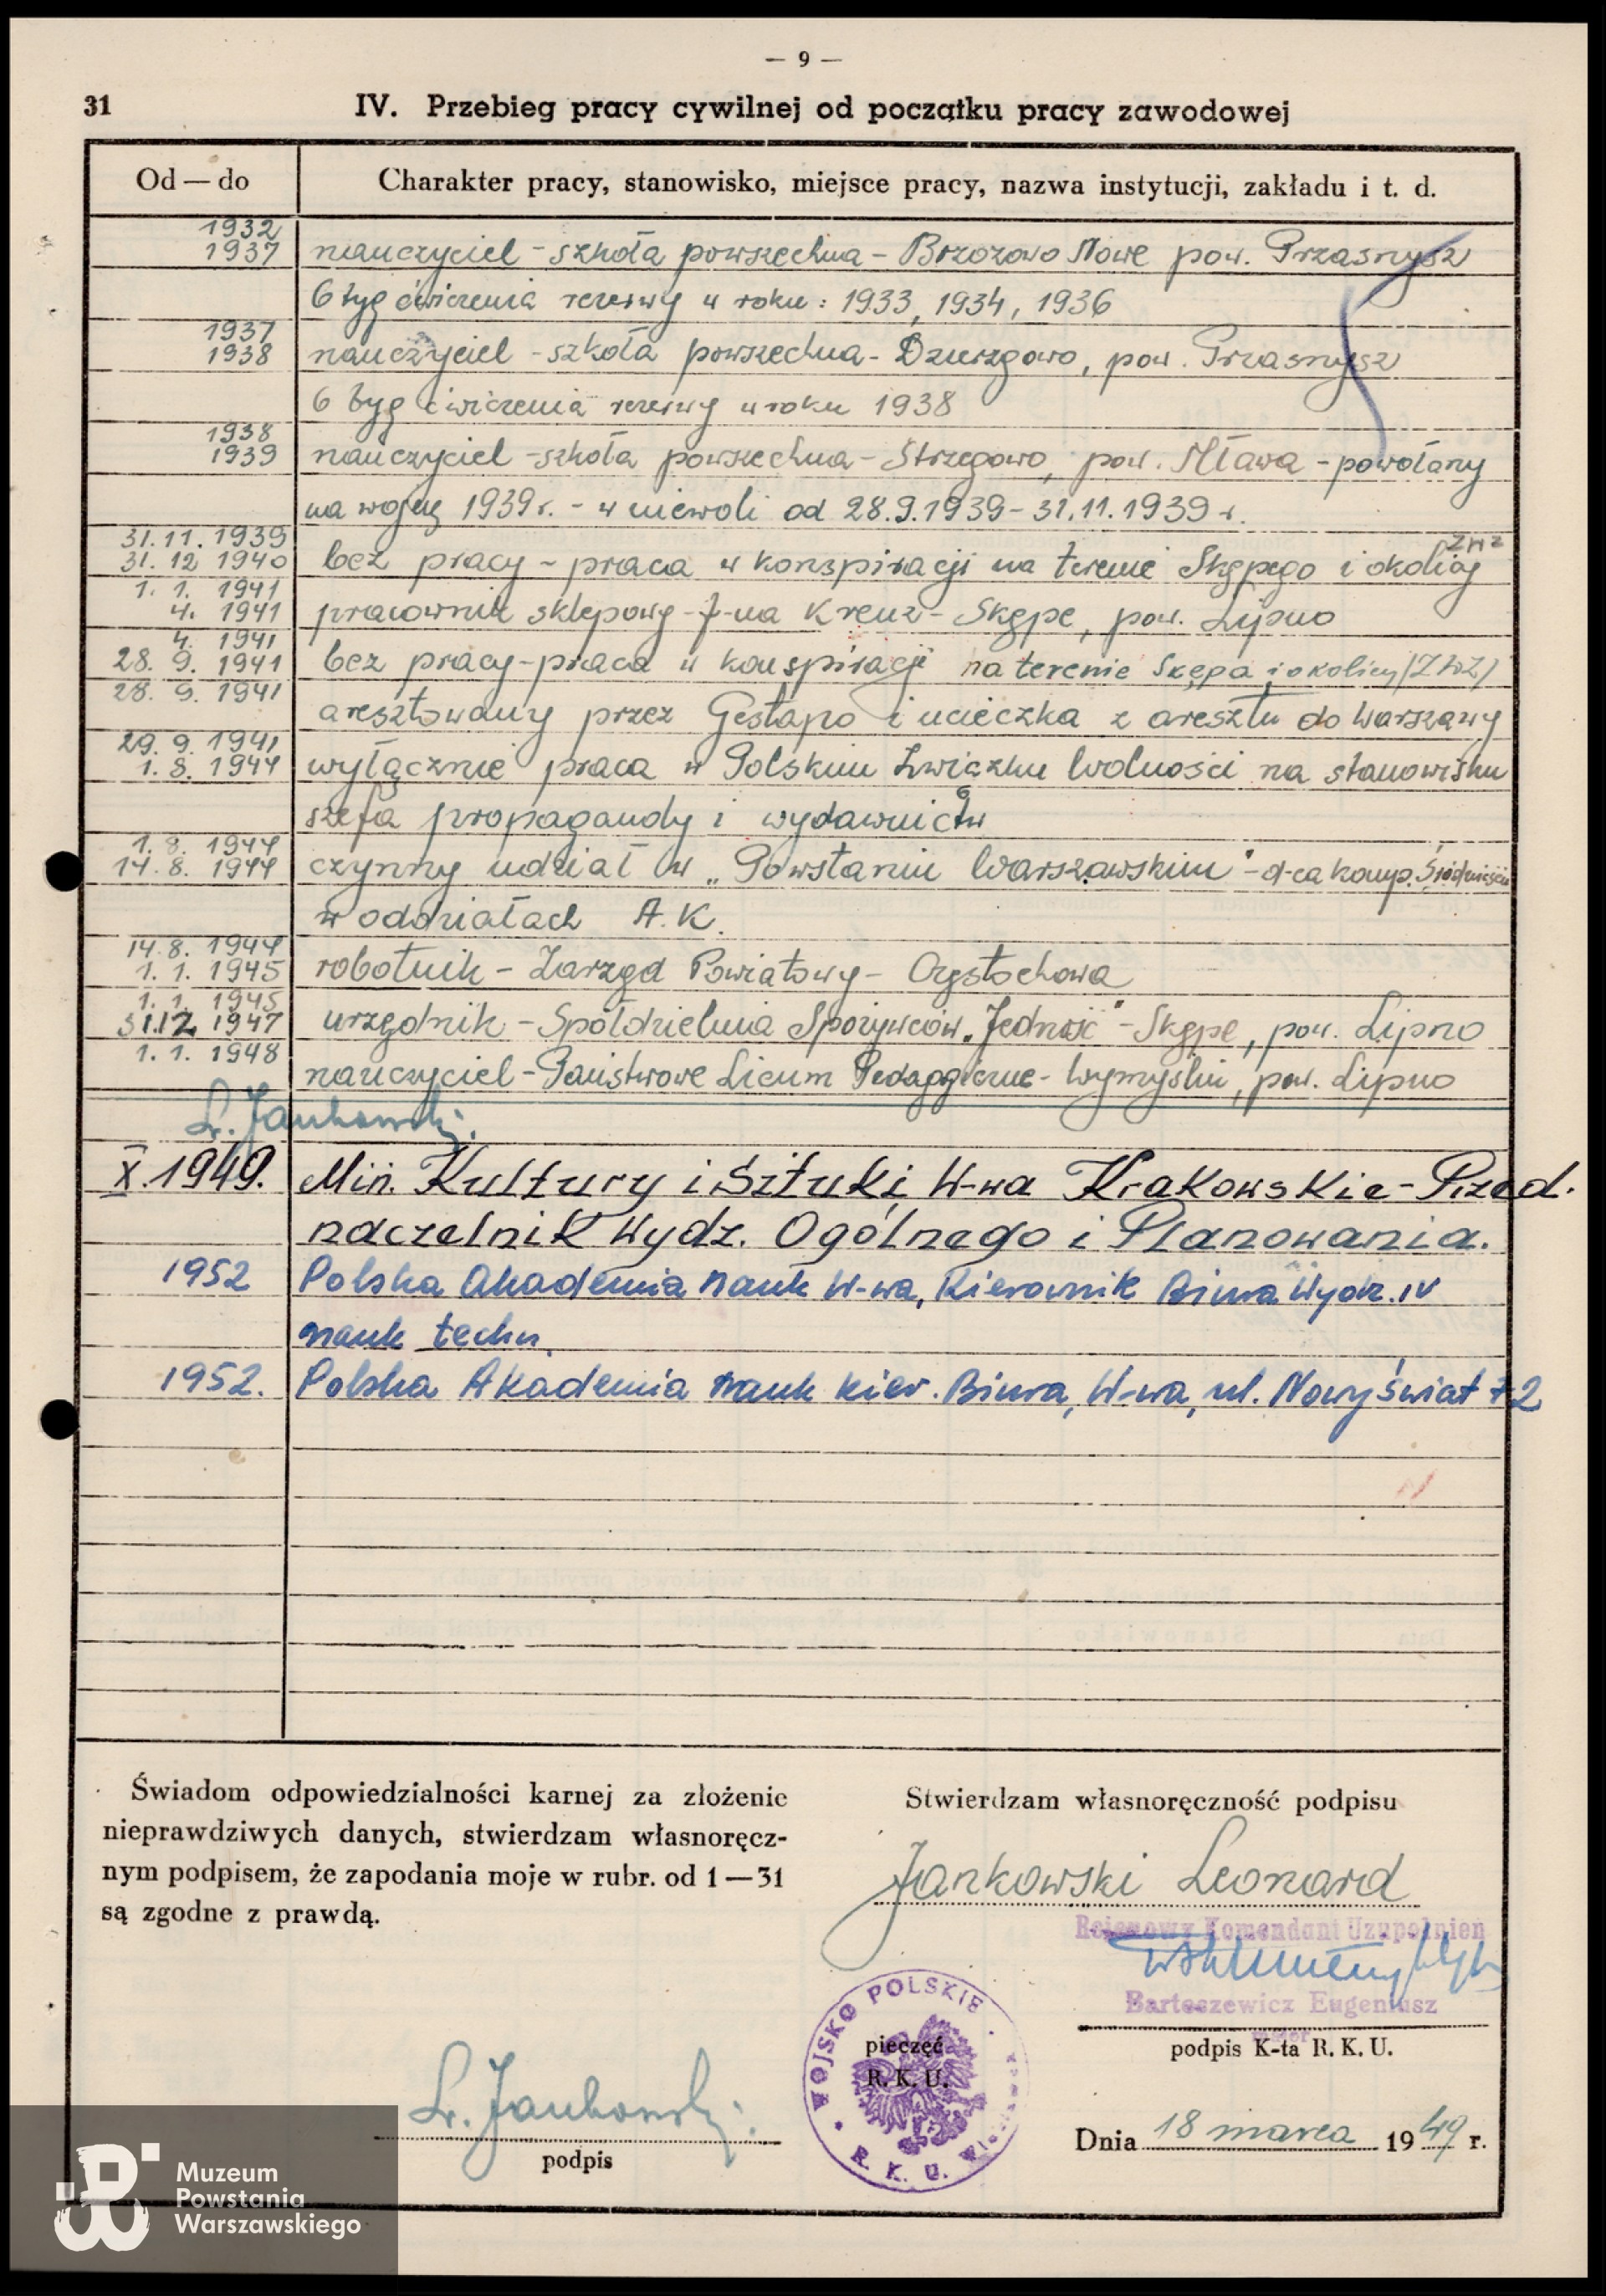 — 9 —
31 IV. Przebieg pracy cywilnej od początku pracy zawodowej
Od — do Charakter pracy, stanowisko, miejsce pracy, nazwa instytucji, zakładu i t. d.
1932
1937 nauczyciel - szkoła powszechna - Brzozowo Nowe pow. Przasnysz
6 tyg ćwiczenia rezerwy w roku : 1933, 1934, 1936
1937
1938 nauczyciel - szkoła powszechna - Dzierzgowo, pow. Przasnysz
6 tyg ćwiczenia rezerwy w roku 1938
1938
1939 nauczyciel - szkoła powszechna - Strzegowo, pow. Mława - powołany
na wojnę 1939 r. - w niewoli od 28.9.1939 - 31.11.1939 r.
31.11.1939
31.12 1940 bez pracy - praca w konspiracji na terenie Skępego i okolicy ZWZ
1. 1. 1941
4. 1941 pracownik sklepowy - f-ma Kreuz - Skępe, pow. Lipno
4. 1941
28. 9. 1941 bez pracy - praca w konspiracji na terenie Skępa i okolicy /ZWZ/
28. 9. 1941
aresztowany przez Gestapo i ucieczka z aresztu do Warszawy
29. 9. 1941
1. 8. 1944 wyłącznie praca w Polskim Związku Wolności na stanowisku
szefa propagandy i wydawnictw
1. 8. 1944
14. 8. 1944 czynny udział w „Powstaniu Warszawskim" - d-ca komp. Śródmieście
w oddziałach A.K.
14. 8. 1944
1. 1. 1945 robotnik - Zarząd Powiatowy - Częstochowa
1. 1. 1945
31.12 1947 urzędnik - Spółdzielnia Spożywców „Jedność" - Skępe, pow. Lipno
1. 1. 1948
nauczyciel - Państwowe Liceum Pedagogiczne - Wymyślin, pow. Lipno
L. Jankowski.
X.1949. Min. Kultury i Sztuki, W-wa Krakowskie-Przed.
naczelnik Wydz. Ogólnego i Planowania.
1952 Polska Akademia Nauk W-wa, Kierownik Biura Wydz. IV
nauk techn.
1952. Polska Akademia Nauk kier. Biura, W-wa, ul. Nowy Świat 72
Świadom odpowiedzialności karnej za złożenie
nieprawdziwych danych, stwierdzam własnoręcz-
nym podpisem, że zapodania moje w rubr. od 1—31
są zgodne z prawdą.
Stwierdzam własnoręczność podpisu
Jankowski Leonard
Rejonowy Komendant Uzupełnień
Bartoszewicz Eugeniusz
major
podpis K-ta R. K. U.
WOJSKO POLSKIE
R. K. U.
pieczęć
R. K. U.
L. Jankowski.
podpis
Dnia 18 marca 1949 r.
Muzeum
Powstania
Warszawskiego